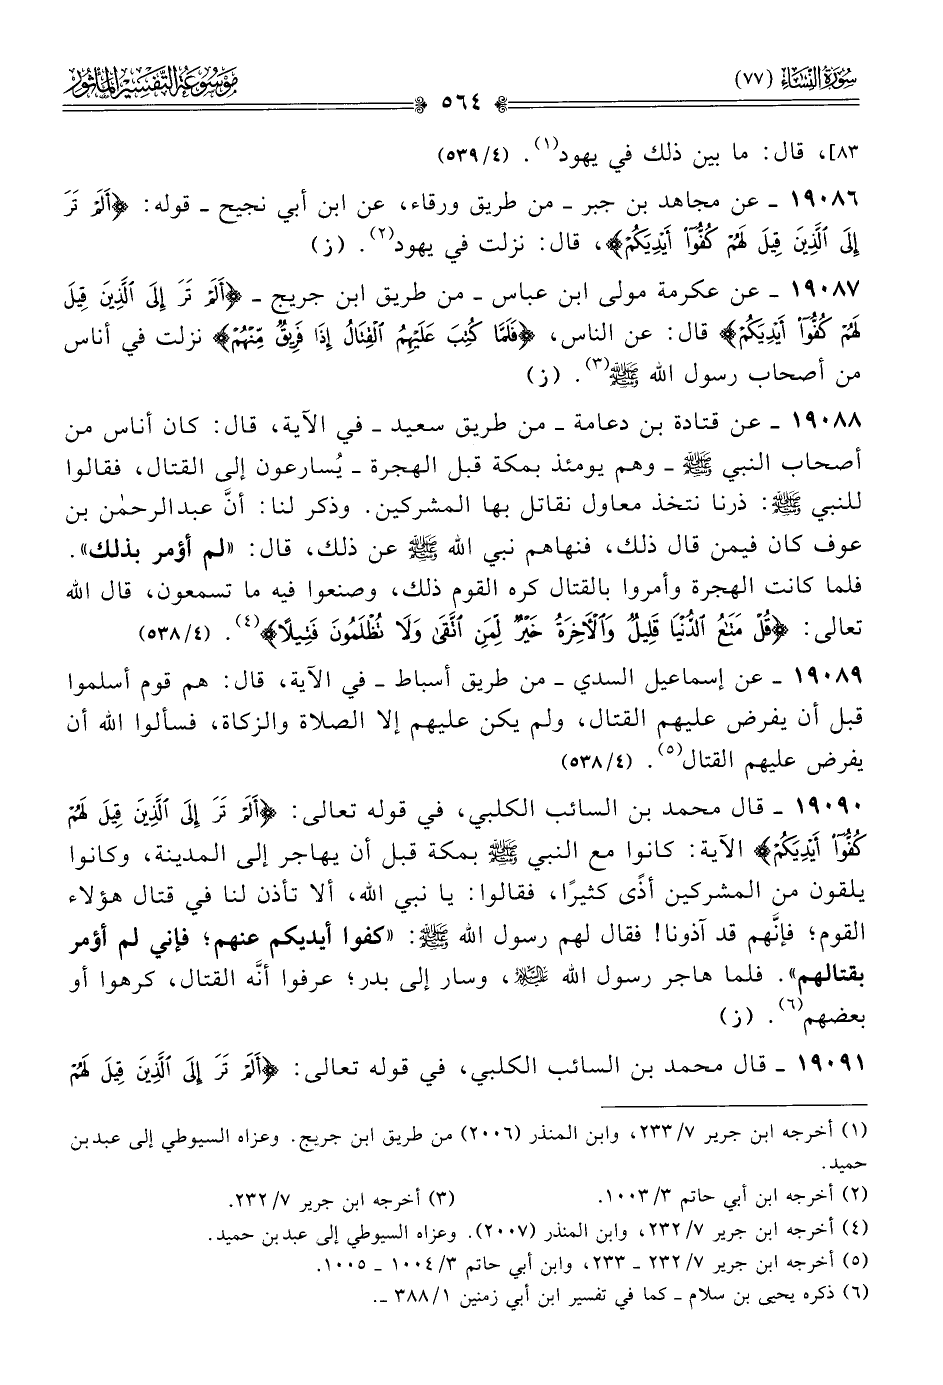 سُورَةُ النِّسَاءِ (٧٧)
٥٦٤
مَوْسُوعَةُ التَّفْسِيرِ المَأْثُور
٨٣]، قال: ما بين ذلك في يهود(١). (٥٣٩/٤)
١٩٠٨٦ ـ عن مجاهد بن جبر ـ من طريق ورقاء، عن ابن أبي نجيح ـ قوله: ﴿أَلَمْ تَرَ
إِلَى ٱلَّذِينَ قِيلَ لَهُمْ كُفُّوٓا۟ أَيْدِيَكُمْ﴾، قال: نزلت في يهود(٢). (ز)
١٩٠٨٧ ـ عن عكرمة مولى ابن عباس ـ من طريق ابن جريج ـ ﴿أَلَمْ تَرَ إِلَى ٱلَّذِينَ قِيلَ
لَهُمْ كُفُّوٓا۟ أَيْدِيَكُمْ﴾ قال: عن الناس، ﴿فَلَمَّا كُتِبَ عَلَيْهِمُ ٱلْقِتَالُ إِذَا فَرِيقٌ مِّنْهُمْ﴾ نزلت في أناس
من أصحاب رسول الله ﷺ(٣). (ز)
١٩٠٨٨ ـ عن قتادة بن دعامة ـ من طريق سعيد ـ في الآية، قال: كان أناس من
أصحاب النبي ﷺ ـ وهم يومئذ بمكة قبل الهجرة ـ يُسارعون إلى القتال، فقالوا
للنبي ﷺ: ذرنا نتخذ معاول نقاتل بها المشركين. وذكر لنا: أنَّ عبدالرحمٰن بن
عوف كان فيمن قال ذلك، فنهاهم نبي الله ﷺ عن ذلك، قال: «لم أؤمر بذلك».
فلما كانت الهجرة وأمروا بالقتال كره القوم ذلك، وصنعوا فيه ما تسمعون، قال الله
تعالى: ﴿قُلْ مَتَٰعُ ٱلدُّنْيَا قَلِيلٌ وَٱلْآخِرَةُ خَيْرٌ لِّمَنِ ٱتَّقَىٰ وَلَا تُظْلَمُونَ فَتِيلًا﴾(٤). (٥٣٨/٤)
١٩٠٨٩ ـ عن إسماعيل السدي ـ من طريق أسباط ـ في الآية، قال: هم قوم أسلموا
قبل أن يفرض عليهم القتال، ولم يكن عليهم إلا الصلاة والزكاة، فسألوا الله أن
يفرض عليهم القتال(٥). (٥٣٨/٤)
١٩٠٩٠ ـ قال محمد بن السائب الكلبي، في قوله تعالى: ﴿أَلَمْ تَرَ إِلَى ٱلَّذِينَ قِيلَ لَهُمْ
كُفُّوٓا۟ أَيْدِيَكُمْ﴾ الآية: كانوا مع النبي ﷺ بمكة قبل أن يهاجر إلى المدينة، وكانوا
يلقون من المشركين أذًى كثيرًا، فقالوا: يا نبي الله، ألا تأذن لنا في قتال هؤلاء
القوم؛ فإنَّهم قد آذونا! فقال لهم رسول الله ﷺ: «كفوا أيديكم عنهم؛ فإني لم أؤمر
بقتالهم». فلما هاجر رسول الله ﵇، وسار إلى بدر؛ عرفوا أنَّه القتال، كرهوا أو
بعضهم(٦). (ز)
١٩٠٩١ ـ قال محمد بن السائب الكلبي، في قوله تعالى: ﴿أَلَمْ تَرَ إِلَى ٱلَّذِينَ قِيلَ لَهُمْ
(١) أخرجه ابن جرير ٢٣٣/٧، وابن المنذر (٢٠٠٦) من طريق ابن جريج. وعزاه السيوطي إلى عبد بن
حميد.
(٢) أخرجه ابن أبي حاتم ١٠٠٣/٣. (٣) أخرجه ابن جرير ٢٣٢/٧.
(٤) أخرجه ابن جرير ٢٣٢/٧، وابن المنذر (٢٠٠٧). وعزاه السيوطي إلى عبد بن حميد.
(٥) أخرجه ابن جرير ٢٣٢/٧ ـ ٢٣٣، وابن أبي حاتم ١٠٠٤/٣ ـ ١٠٠٥.
(٦) ذكره يحيى بن سلام ـ كما في تفسير ابن أبي زمنين ٣٨٨/١ ـ.